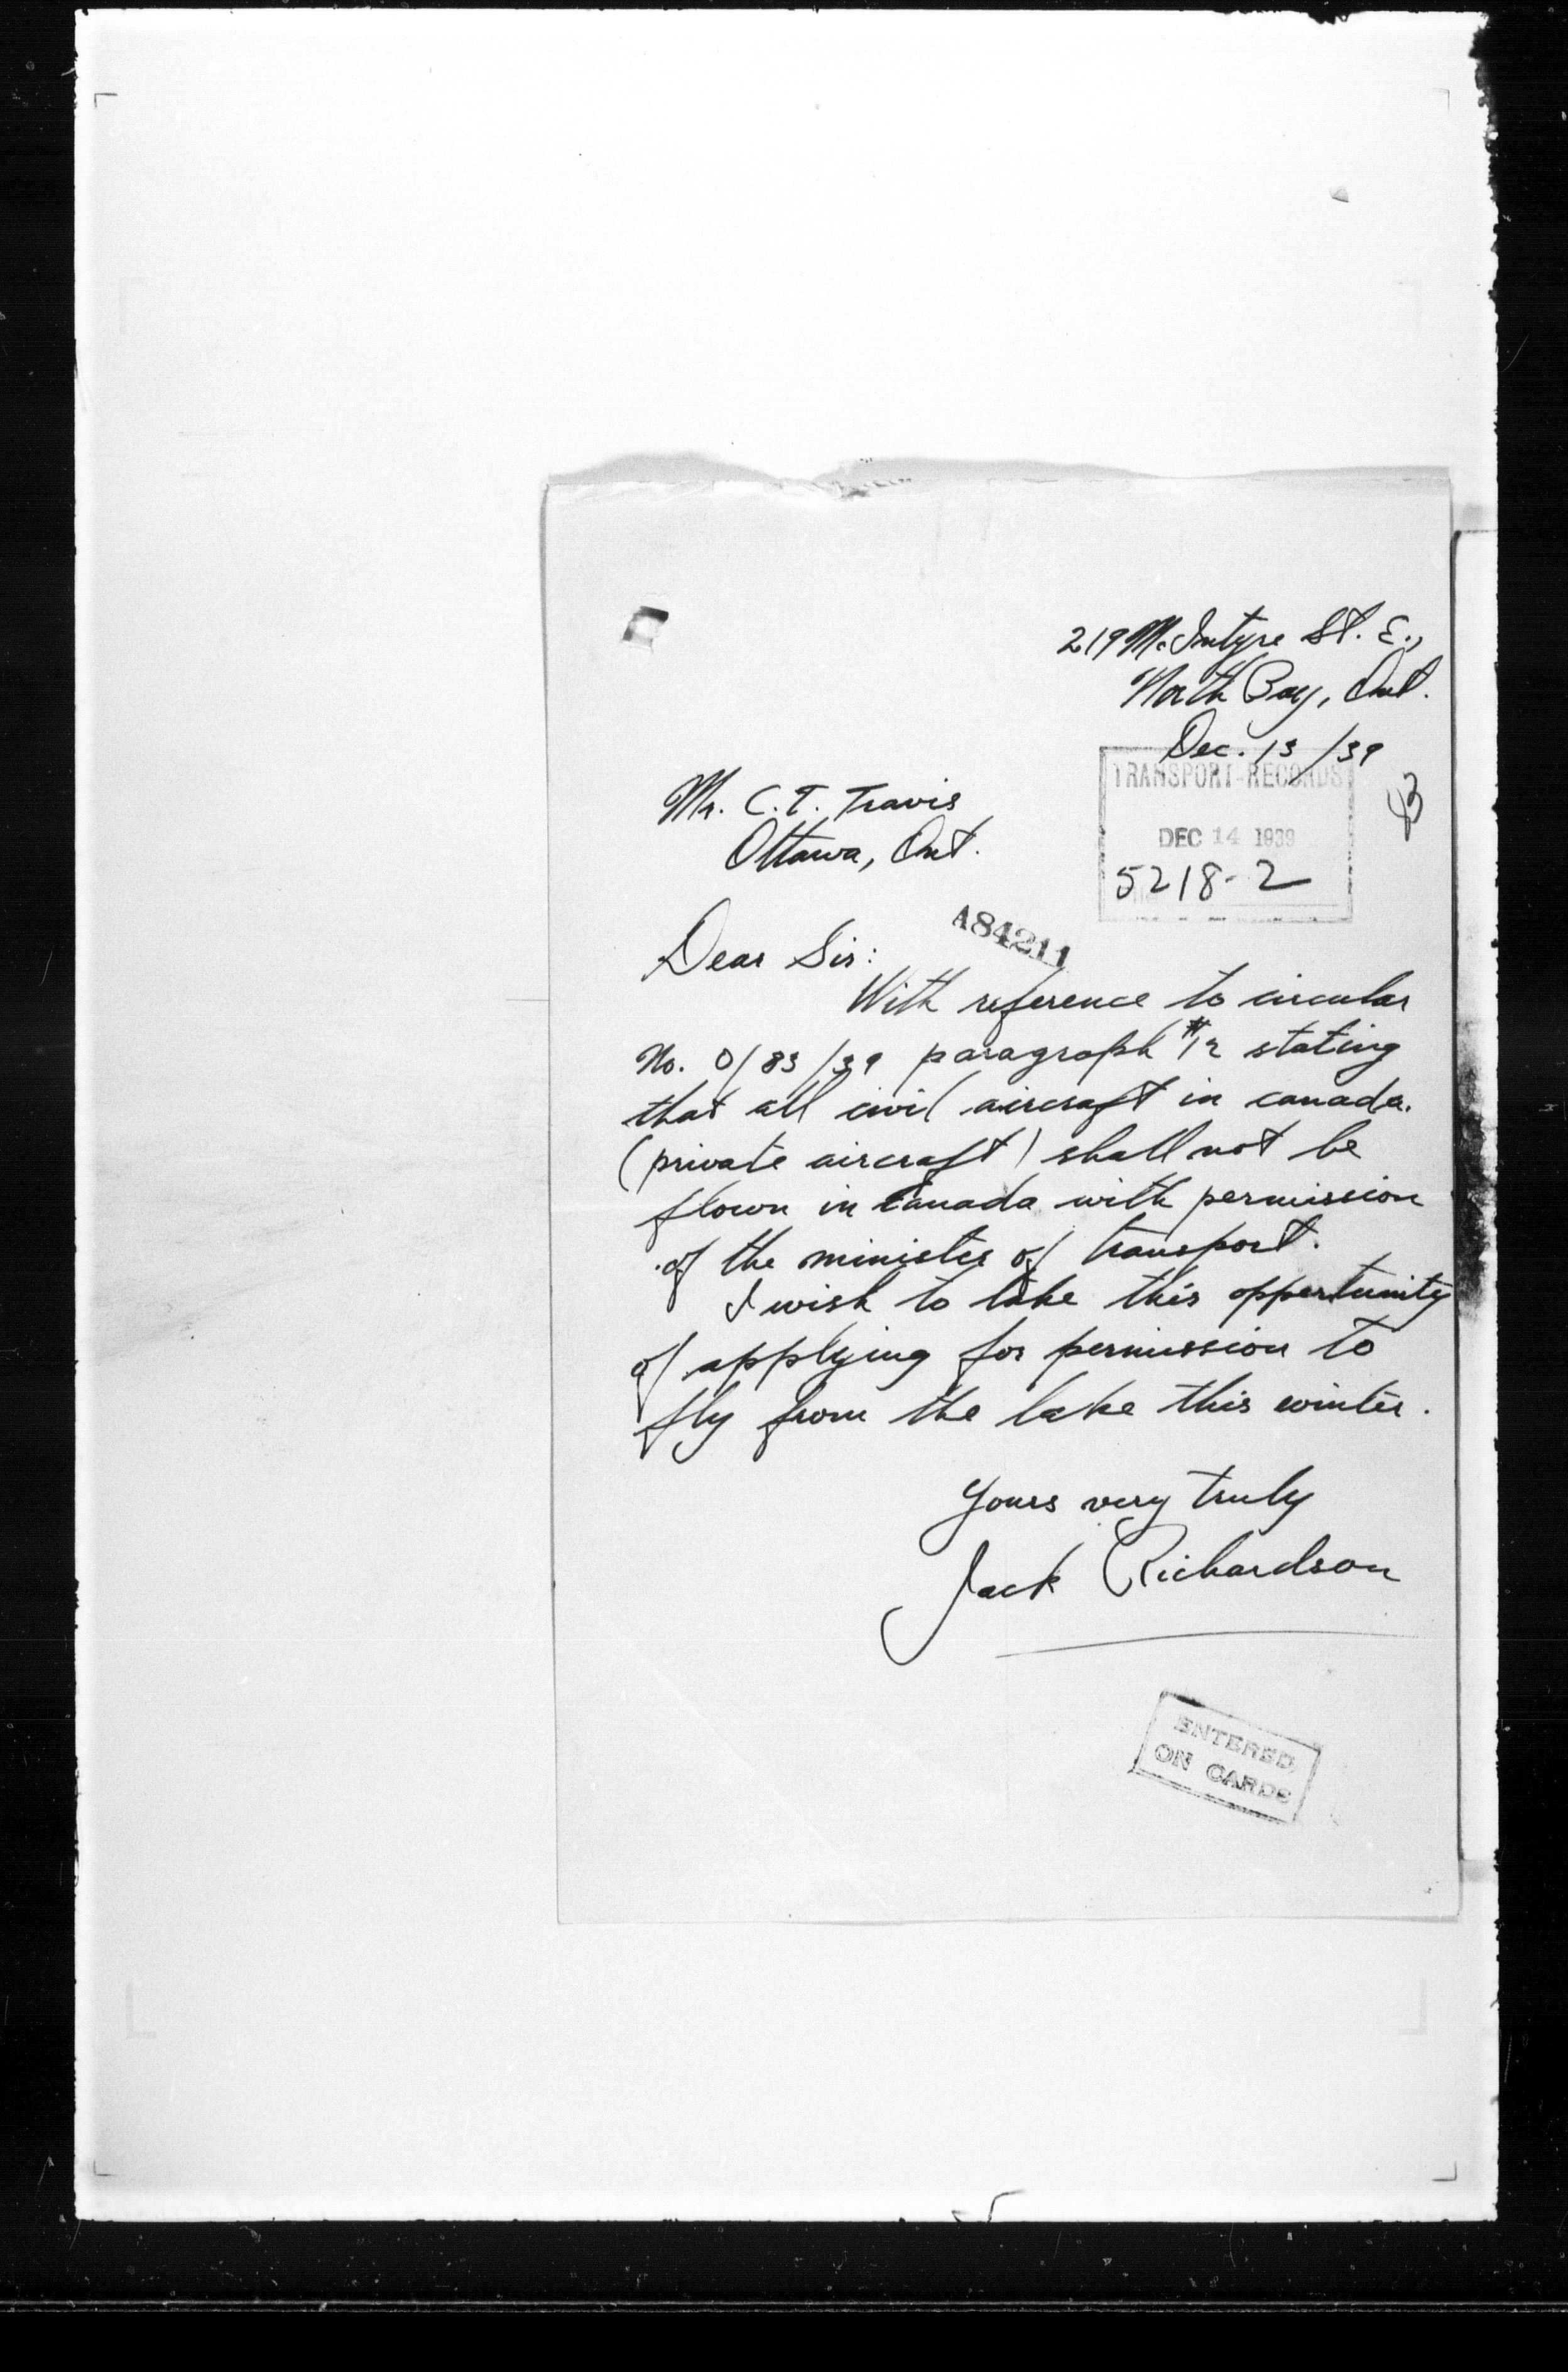 219 McIntyre St. E.,
North Bay, Ont.
Dec. 13/39
TRANSPORT-RECORDS
DEC 14 1939
5218-2
Mr. C. T. Travis
Ottawa, Ont.
A84211
Dear Sir:
With reference to circular
No. 0/83/39 paragraph #12 stating
that all civil aircraft in canada.
(private aircraft) shall not be
flown in Canada with permission
of the minister of transport.
I wish to take this oppertunity
of applying for permission to
fly from the lake this winter.
Yours very truly
Jack Richardson
ENTERED
ON CARDS